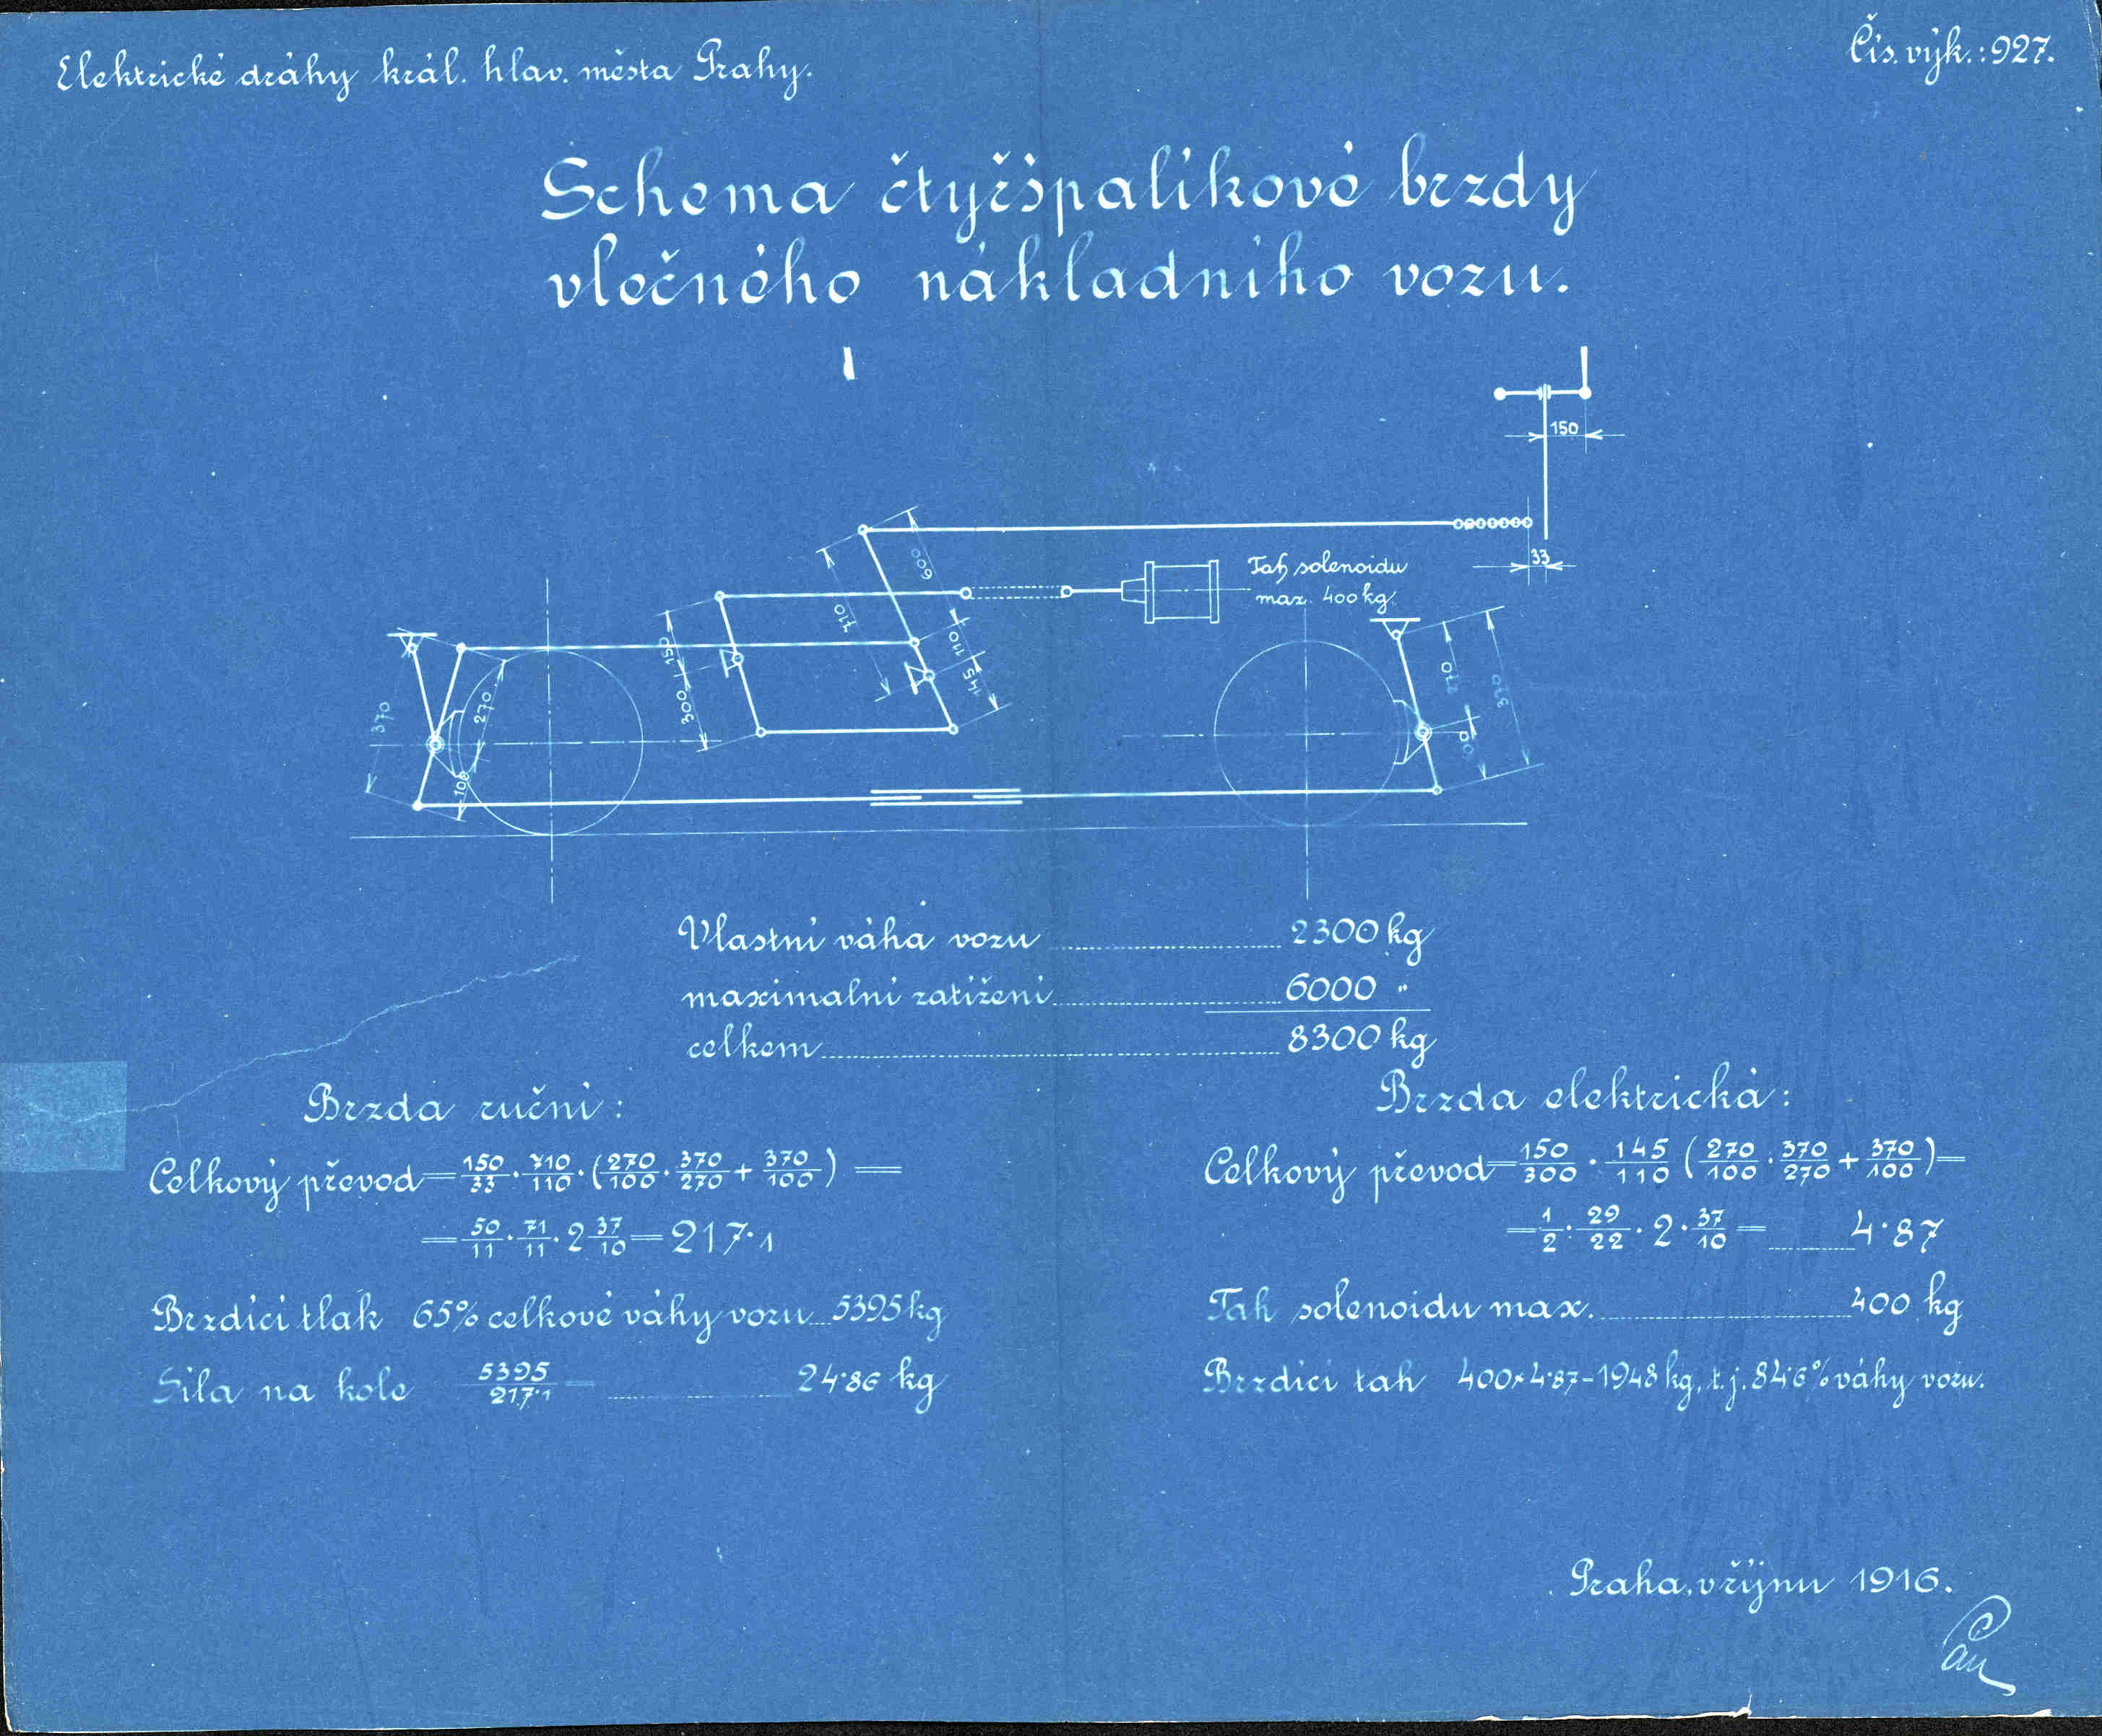 Elektrické dráhy král. hlav. města Prahy.
Čís. výk.: 927.
Schema čtyřšpalíkové brzdy
vlečného nákladního vozu.
150
33
600
710
110
145
Tah solenoidu
max. 400 kg.
150
300
370
270
100
270
370
100
Vlastní váha vozu 2300 kg
maximalní zatížení 6000 "
celkem 8300 kg
Brzda ruční:
Celkový převod = 150/33 · 710/110 · (270/100 · 370/270 + 370/100) =
= 50/11 · 71/11 · 2 37/10 = 217·1
Brzdící tlak 65% celkové váhy vozu 5395 kg
Síla na kole 5395/217·1 = 24·86 kg
Brzda elektrická:
Celkový převod = 150/300 · 145/110 (270/100 · 370/270 + 370/100) =
= 1/2 · 29/22 · 2 · 37/10 = 4·87
Tah solenoidu max. 400 kg
Brzdící tah 400 × 4·87 = 1948 kg, t.j. 84·6% váhy vozu.
Praha, v říjnu 1916.